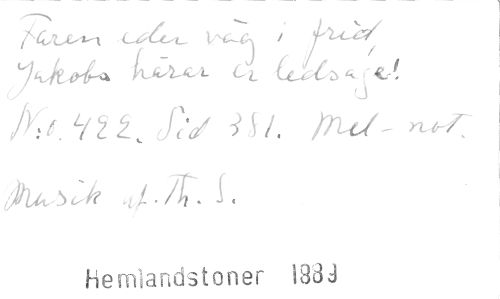 Faren eder väg i frid,
Jakobs härar er ledsaga!
N:o. 422. Sid 381. Mel-not.
Musik af. Th. S.
Hemlandstoner 1889